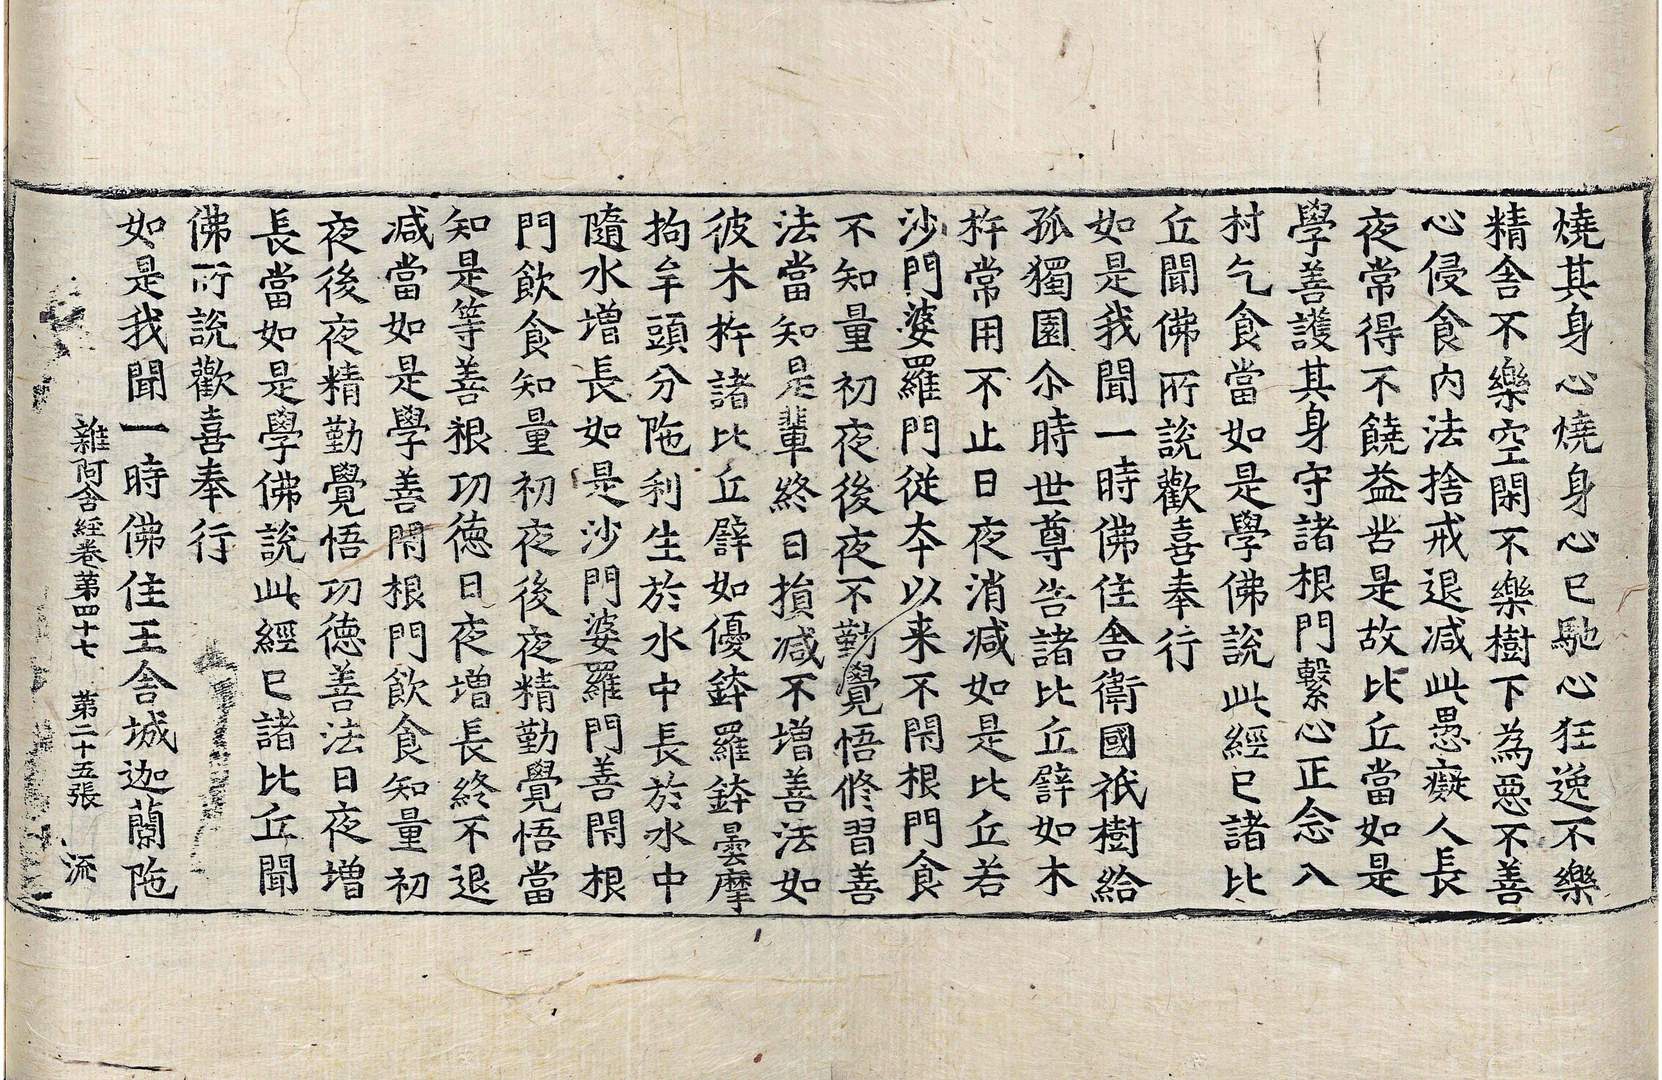 燒其身心燒身心已馳心狂逸不樂
精舍不樂空閑不樂樹下為惡不善
心侵食內法捨戒退減此愚癡人長
夜常得不饒益苦是故比丘當如是
學善護其身守諸根門繫心正念入
村乞食當如是學佛說此經已諸比
丘聞佛所說歡喜奉行
如是我聞一時佛住舍衛國祇樹給
孤獨園尒時世尊告諸比丘譬如木
杵常用不止日夜消减如是比丘若
沙門婆羅門從夲以来不閇根門食
不知量初夜後夜不勤覺悟修習善
法當知是輩終日損减不增善法如
彼木杵諸比丘譬如優鉢羅鉢曇摩
拘牟頭分陁利生於水中長於水中
隨水增長如是沙門婆羅門善閇根
門飲食知量初夜後夜精勤覺悟當
知是等善根功德日夜增長終不退
减當如是學善閇根門飲食知量初
夜後夜精勤覺悟功德善法日夜增
長當如是學佛說此經已諸比丘聞
佛所說歡喜奉行
如是我聞一時佛住王舍城迦蘭陁
雜阿含經卷第四十七 第二十五張 流